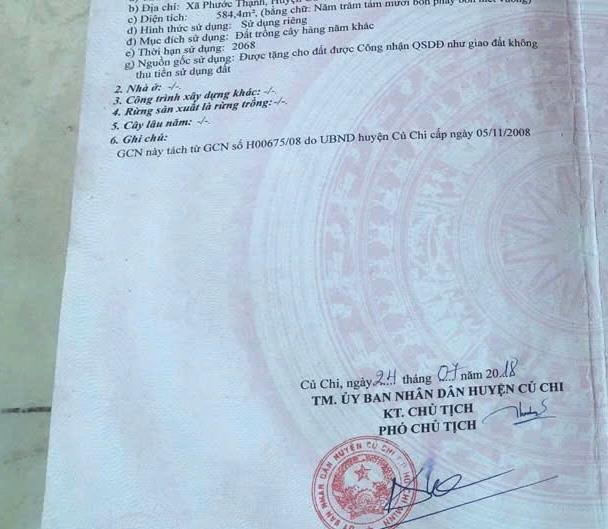 b) Địa chỉ: Xã Phước Thạnh,
c) Diện tích: 584,4m², (bằng chữ: Năm trăm tám mươi bốn phẩy bốn mét vuông)
d) Hình thức sử dụng: Sử dụng riêng
đ) Mục đích sử dụng: Đất trồng cây hàng năm khác
e) Thời hạn sử dụng: 2068
g) Nguồn gốc sử dụng: Được tặng cho đất được Công nhận QSDĐ như giao đất không
thu tiền sử dụng đất
2. Nhà ở: -/-
3. Công trình xây dựng khác: -/-
4. Rừng sản xuất là rừng trồng: -/-
5. Cây lâu năm: -/-
6. Ghi chú:
GCN này tách từ GCN số H00675/08 do UBND huyện Củ Chi cấp ngày 05/11/2008
Củ Chi, ngày 24 tháng 07 năm 2018
TM. ỦY BAN NHÂN DÂN HUYỆN CỦ CHI
KT. CHỦ TỊCH
PHÓ CHỦ TỊCH
ỦY BAN NHÂN DÂN HUYỆN CỦ CHI